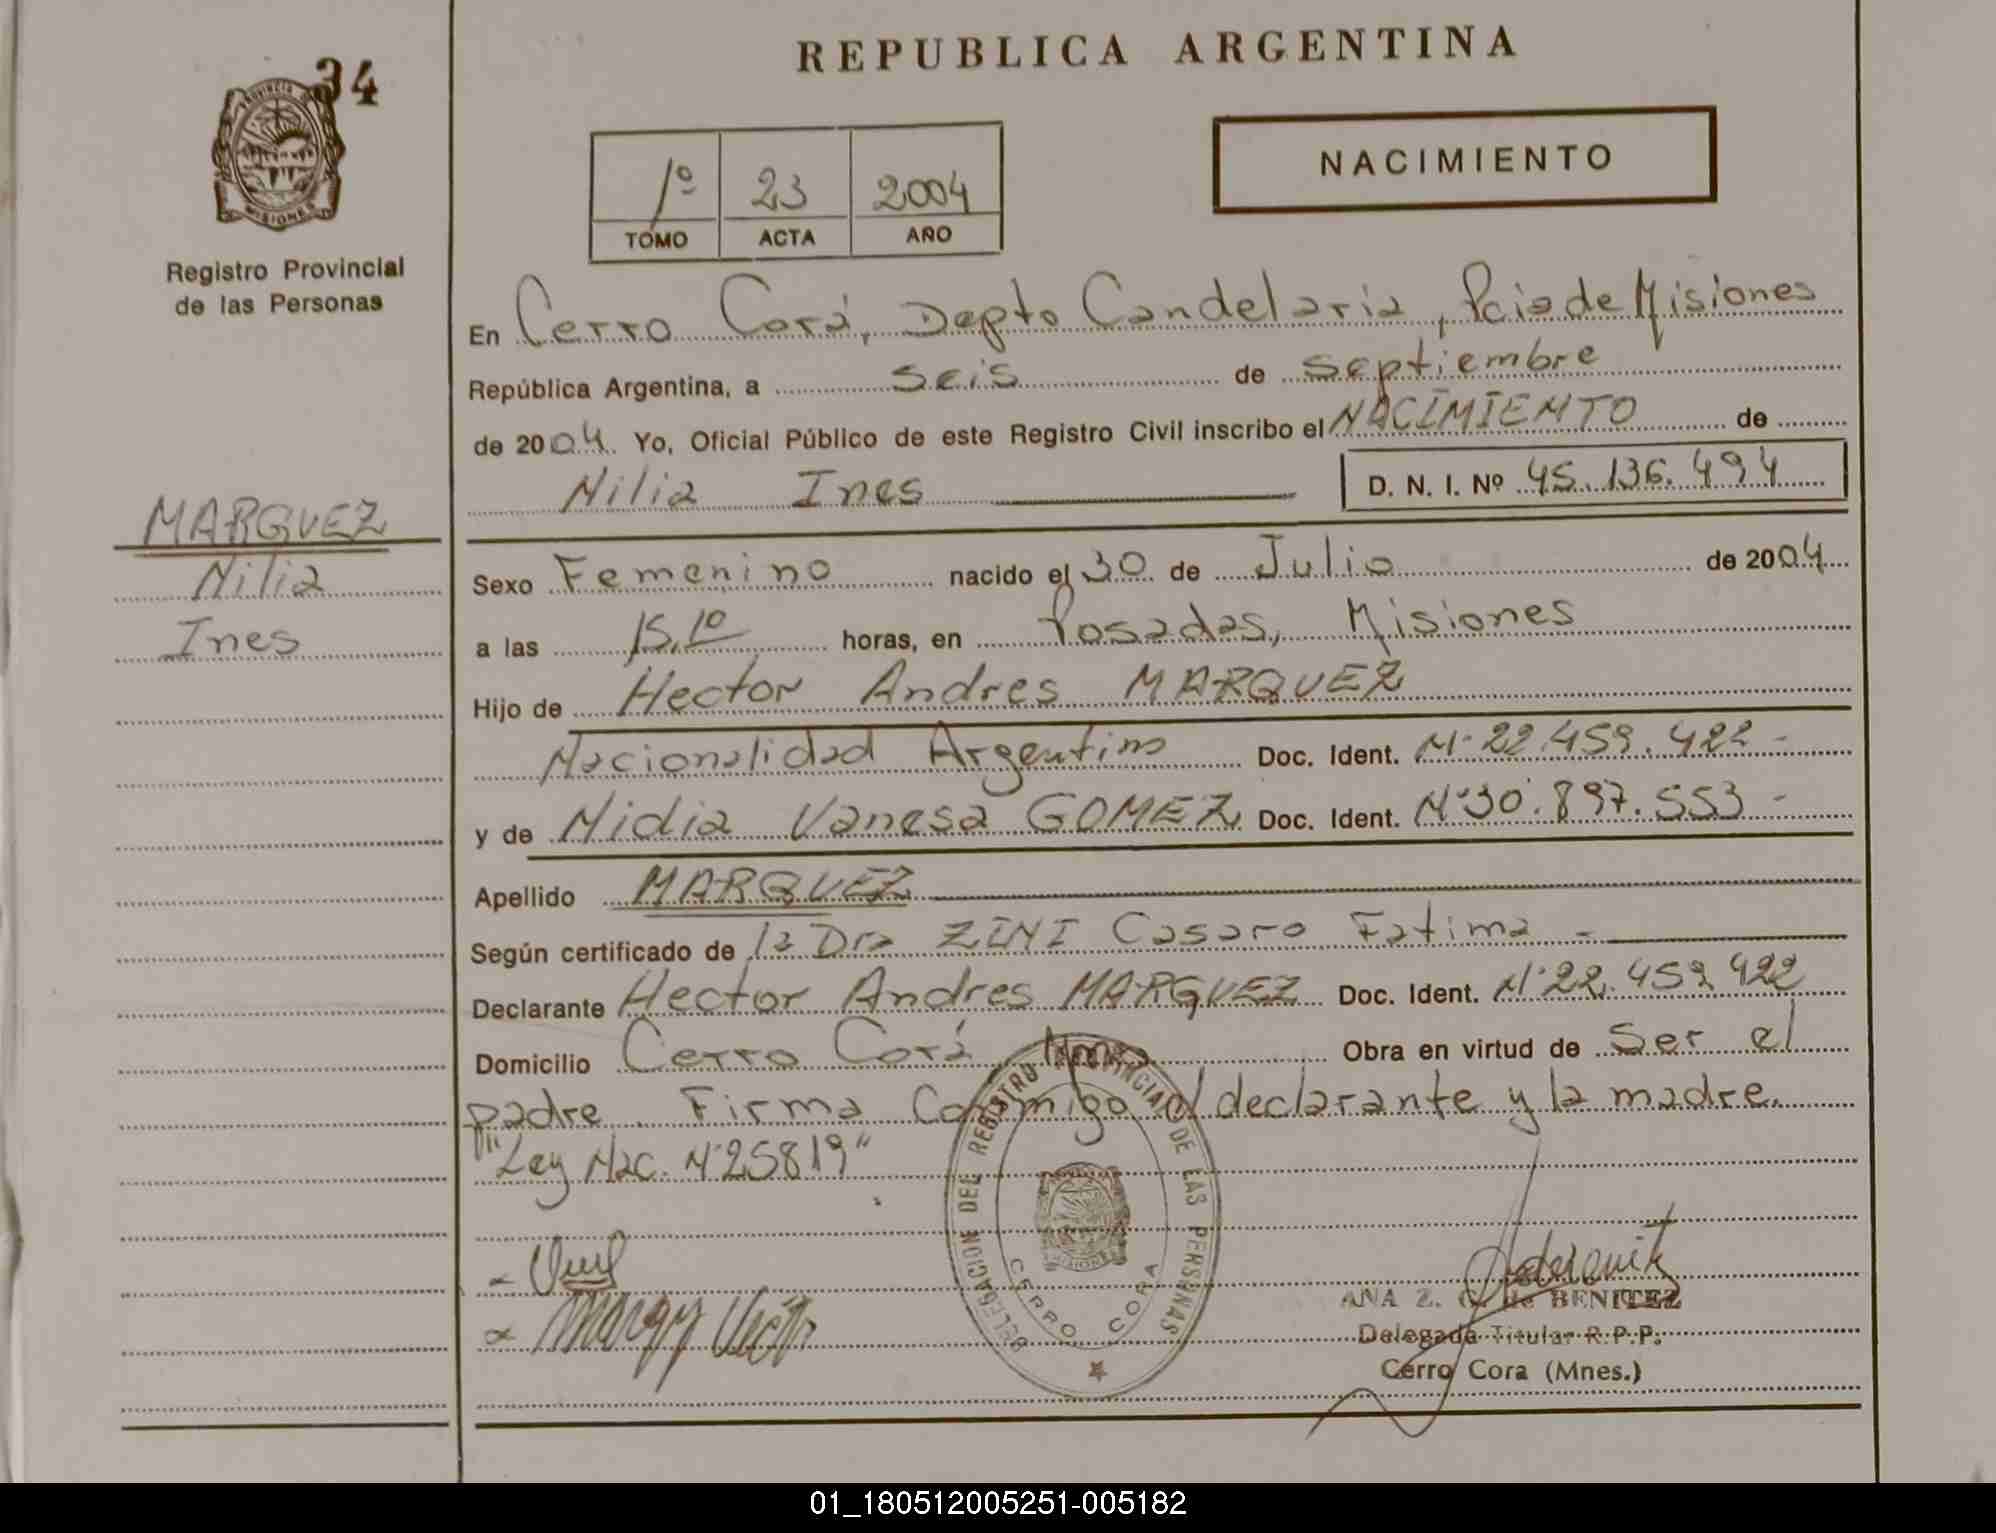 REPUBLICA ARGENTINA
34
PROVINCIA DE
MISIONES
Registro Provincial
de las Personas
1º 23 2004
TOMO ACTA AÑO
NACIMIENTO
En Cerro Corá, Depto Candelaria, Pcia de Misiones
República Argentina, a seis de septiembre
de 2004. Yo, Oficial Público de este Registro Civil inscribo el NACIMIENTO de
Nilia Ines D. N. I. Nº 45.136.494
MARQUEZ
Nilia
Ines
Sexo Femenino nacido el 30 de Julio de 2004
a las 15,10 horas, en Posadas, Misiones
Hijo de Hector Andres MARQUEZ
Nacionalidad Argentino Doc. Ident. Nº 22.459.422 -
y de Nidia Vanesa GOMEZ Doc. Ident. Nº 30.897.553 -
Apellido MARQUEZ
Según certificado de la Dra ZINI Casaro Fatima -
Declarante Hector Andres MARQUEZ Doc. Ident. Nº 22.459.422
Domicilio Cerro Corá Mnes Obra en virtud de Ser el
padre. Firma Conmigo el declarante y la madre.
"Ley Nac. Nº 25819"
DELEGACION DEL REGISTRO PROVINCIAL DE LAS PERSONAS
CERRO CORA
ANA Z. G. de BENITEZ
Delegada Titular R.P.P.
Cerro Cora (Mnes.)
01_180512005251-005182